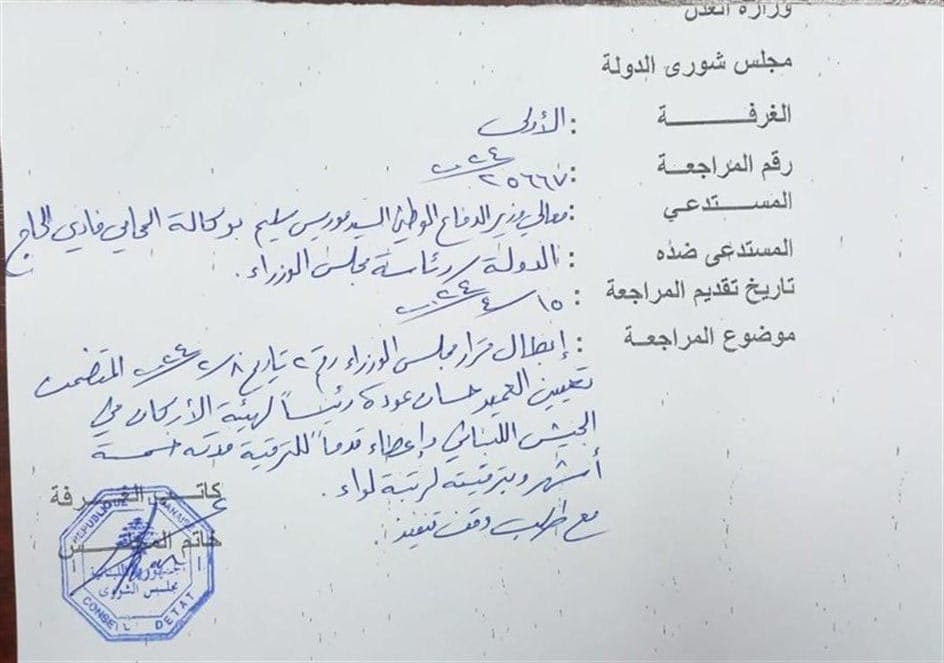 وزارة العدل
مجلس شورى الدولة
الغرفة : الأولى
رقم المراجعة : ٢٥٦٦٧/٢٠٢٤
المستدعي : معالي وزير الدفاع الوطني السيد موريس سليم بوكالة المحامي فادي الحاج
المستدعى ضده : الدولة / رئاسة مجلس الوزراء.
تاريخ تقديم المراجعة : ١٥/٤/٢٠٢٤
موضوع المراجعة : إبطال قرار مجلس الوزراء رقم ٢ تاريخ ٨/٢/٢٠٢٤ المتضمن
تعيين العميد حسان عودة رئيساً لهيئة الأركان في
الجيش اللبناني وإعطاء قدماً للترقية مدته خمسة
أشهر وبترقيته لرتبة لواء.
مع طلب وقف تنفيذ.
كاتب الغرفة
خاتم المجلس
REPUBLIQUE LIBANAISE
الجمهورية اللبنانية
مجلس الشورى
CONSEIL D'ETAT